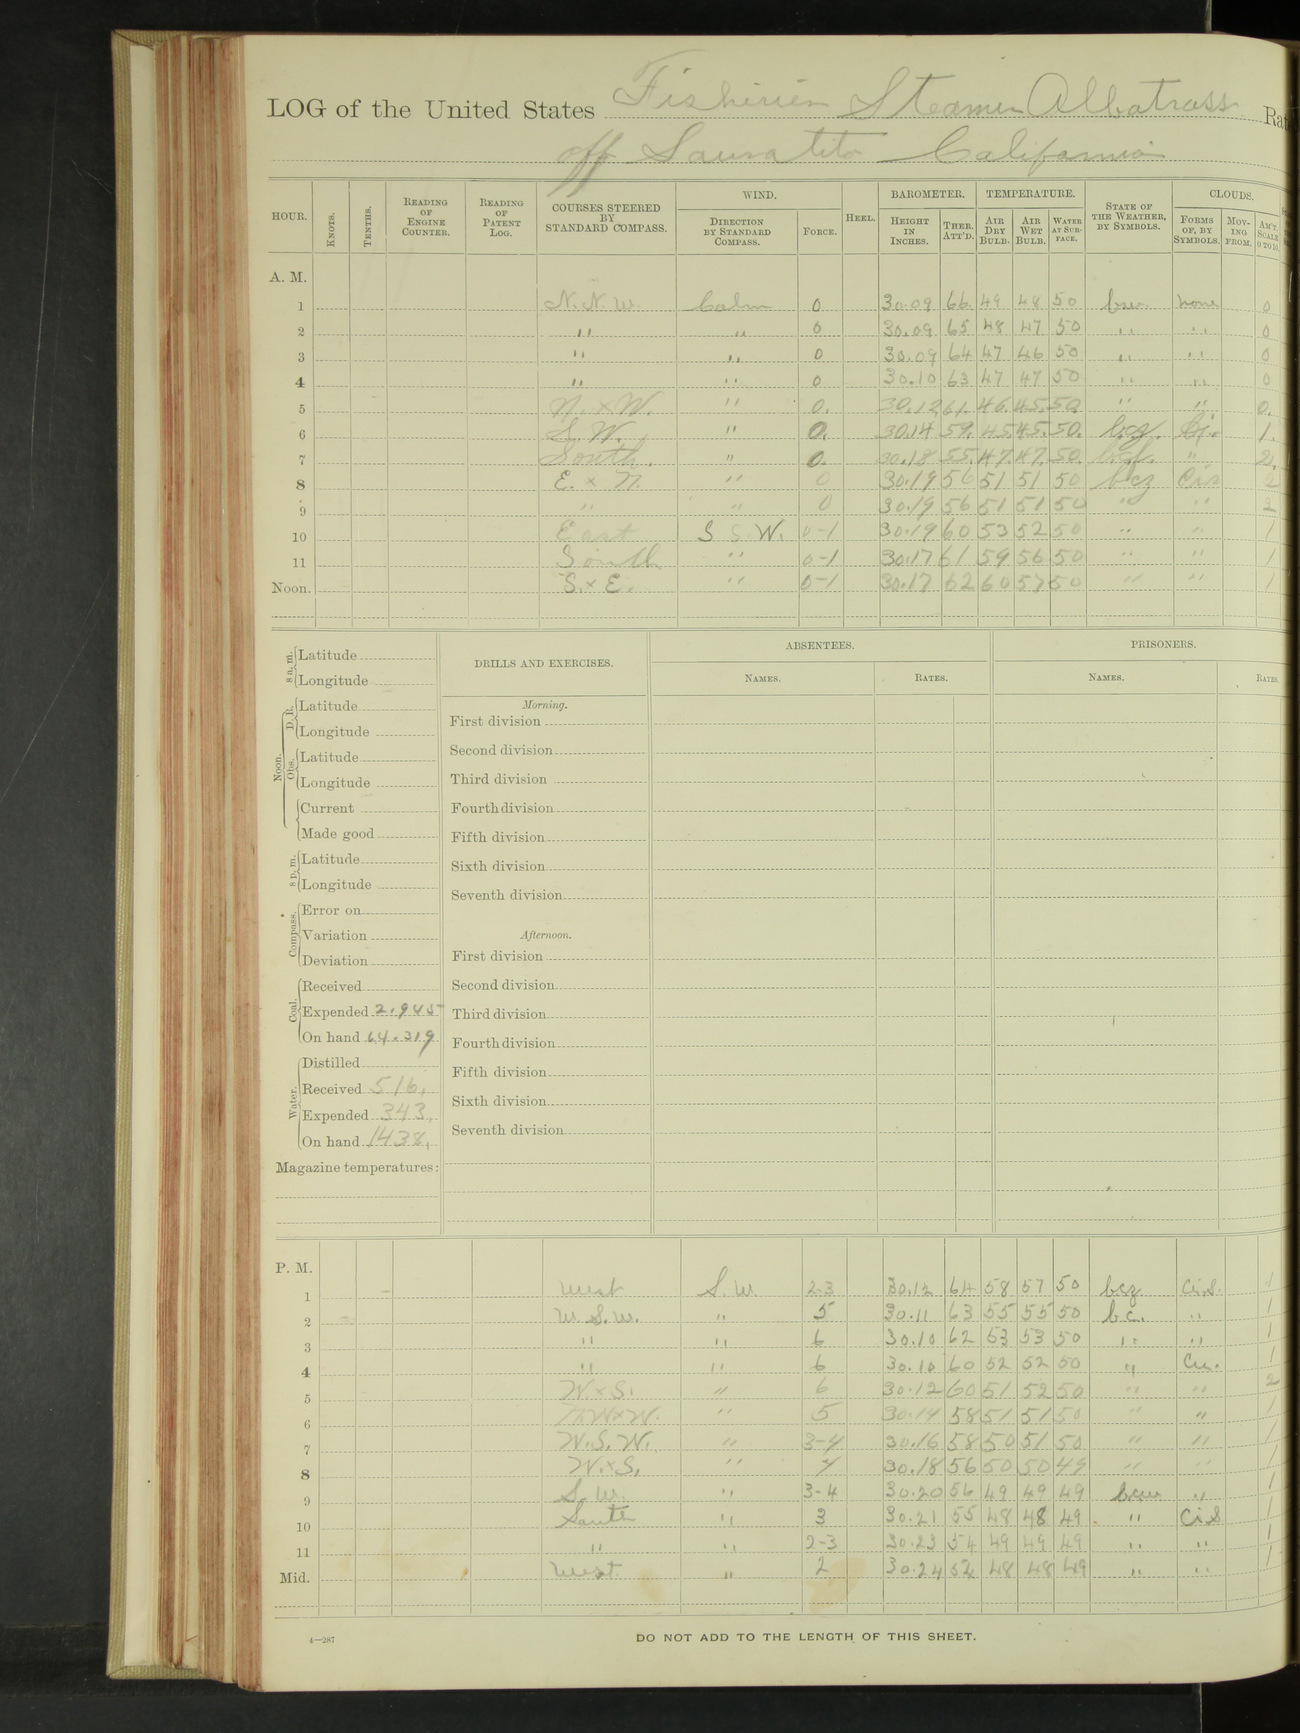 LOG of the United States Fisheries Steamer Albatross Rat
off Sausalito California
HOUR. KNOTS. TENTHS. READING OF ENGINE COUNTER. READING OF PATENT LOG. COURSES STEERED BY STANDARD COMPASS. WIND. DIRECTION BY STANDARD COMPASS. FORCE. HEEL. BAROMETER. HEIGHT IN INCHES. THER. ATT'D. TEMPERATURE. AIR DRY BULB. AIR WET BULB. WATER AT SURFACE. STATE OF THE WEATHER, BY SYMBOLS. CLOUDS. FORMS OF, BY SYMBOLS. MOVING FROM. AM'T. SCALE 0 TO 10.
A. M.
1 N.N.W. Calm 0 30.09 66 49 48 50 none 0
2 " " 0 30.09 65 48 47 50 " " 0
3 " " 0 30.09 64 47 46 50 " " 0
4 " " 0 30.10 63 47 47 50 " " 0
5 N.xW. " 0. 30.12 61. 46. 45. 50. " " 0.
6 S.W. " 0. 30.14 59. 45. 45. 50. bcz. Ci. 1.
7 South. " 0. 30.18 55. 47. 47. 50. " 2.
8 E. x N. " 0 30.19 56 51 51 50 bcz 2
9 " " 0 30.19 56 51 51 50 " " 2
10 East S S.W. 0-1 30.19 60 53 52 50 " " 1
11 South " 0-1 30.17 61 59 56 50 " " 1
Noon. S.xE. " 0-1 30.17 62 60 57 50 " " 1
8 a.m. Latitude
Longitude
Noon. D.R. Latitude
Longitude
Obs. Latitude
Longitude
Current
Made good
8 p.m. Latitude
Longitude
Compass. Error on
Variation
Deviation
Coal. Received
Expended 2.945
On hand 64.319
Water. Distilled
Received 516.
Expended 343.
On hand 1438.
Magazine temperatures:
DRILLS AND EXERCISES.
Morning.
First division
Second division
Third division
Fourth division
Fifth division
Sixth division
Seventh division
Afternoon.
First division
Second division
Third division
Fourth division
Fifth division
Sixth division
Seventh division
ABSENTEES.
NAMES. RATES.
PRISONERS.
NAMES. RATES.
P. M.
1 West S.W. 2-3 30.12 64 58 57 50 bcz Ci.S. 1
2 W.S.W. " 5 30.11 63 55 55 50 bc. " 1
3 " " 6 30.10 62 53 53 50 " " 1
4 " " 6 30.10 60 52 52 50 " 1
5 W x S. " 6 30.12 60 51 52 50 " " 2
6 " 5 30.14 58 51 51 50 " " 1
7 W.S.W. " 3-4 30.16 58 50 51 50 " " 1
8 W.xS. " 4 30.18 56 50 50 49 " " 1
9 S.W. " 3-4 30.20 56 49 49 49 " 1
10 South " 3 30.21 55 48 48 49 " CiS 1
11 " " 2-3 30.23 54 49 49 49 " " 1
Mid. West. " 2 30.24 52 48 48 49 " " 1
4—287
DO NOT ADD TO THE LENGTH OF THIS SHEET.